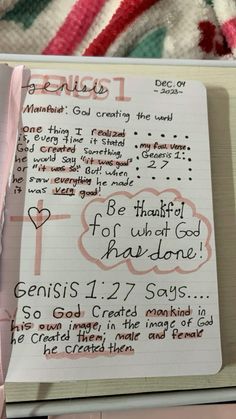 genisis
GENISIS 1
DEC. 04
~2023~
MainPoint: God creating the world
one thing I realized
is, every time it stated
God created something,
he would say "it was good"
or "it was so." But! when
he saw everything he made
it was very good!
my fav. verse
Genesis 1:
27
Be thankful
for what God
has done!
GENISIS 1:27 Says....
So God Created mankind in
his own image, in the image of God
he Created them; male and female
he created them.